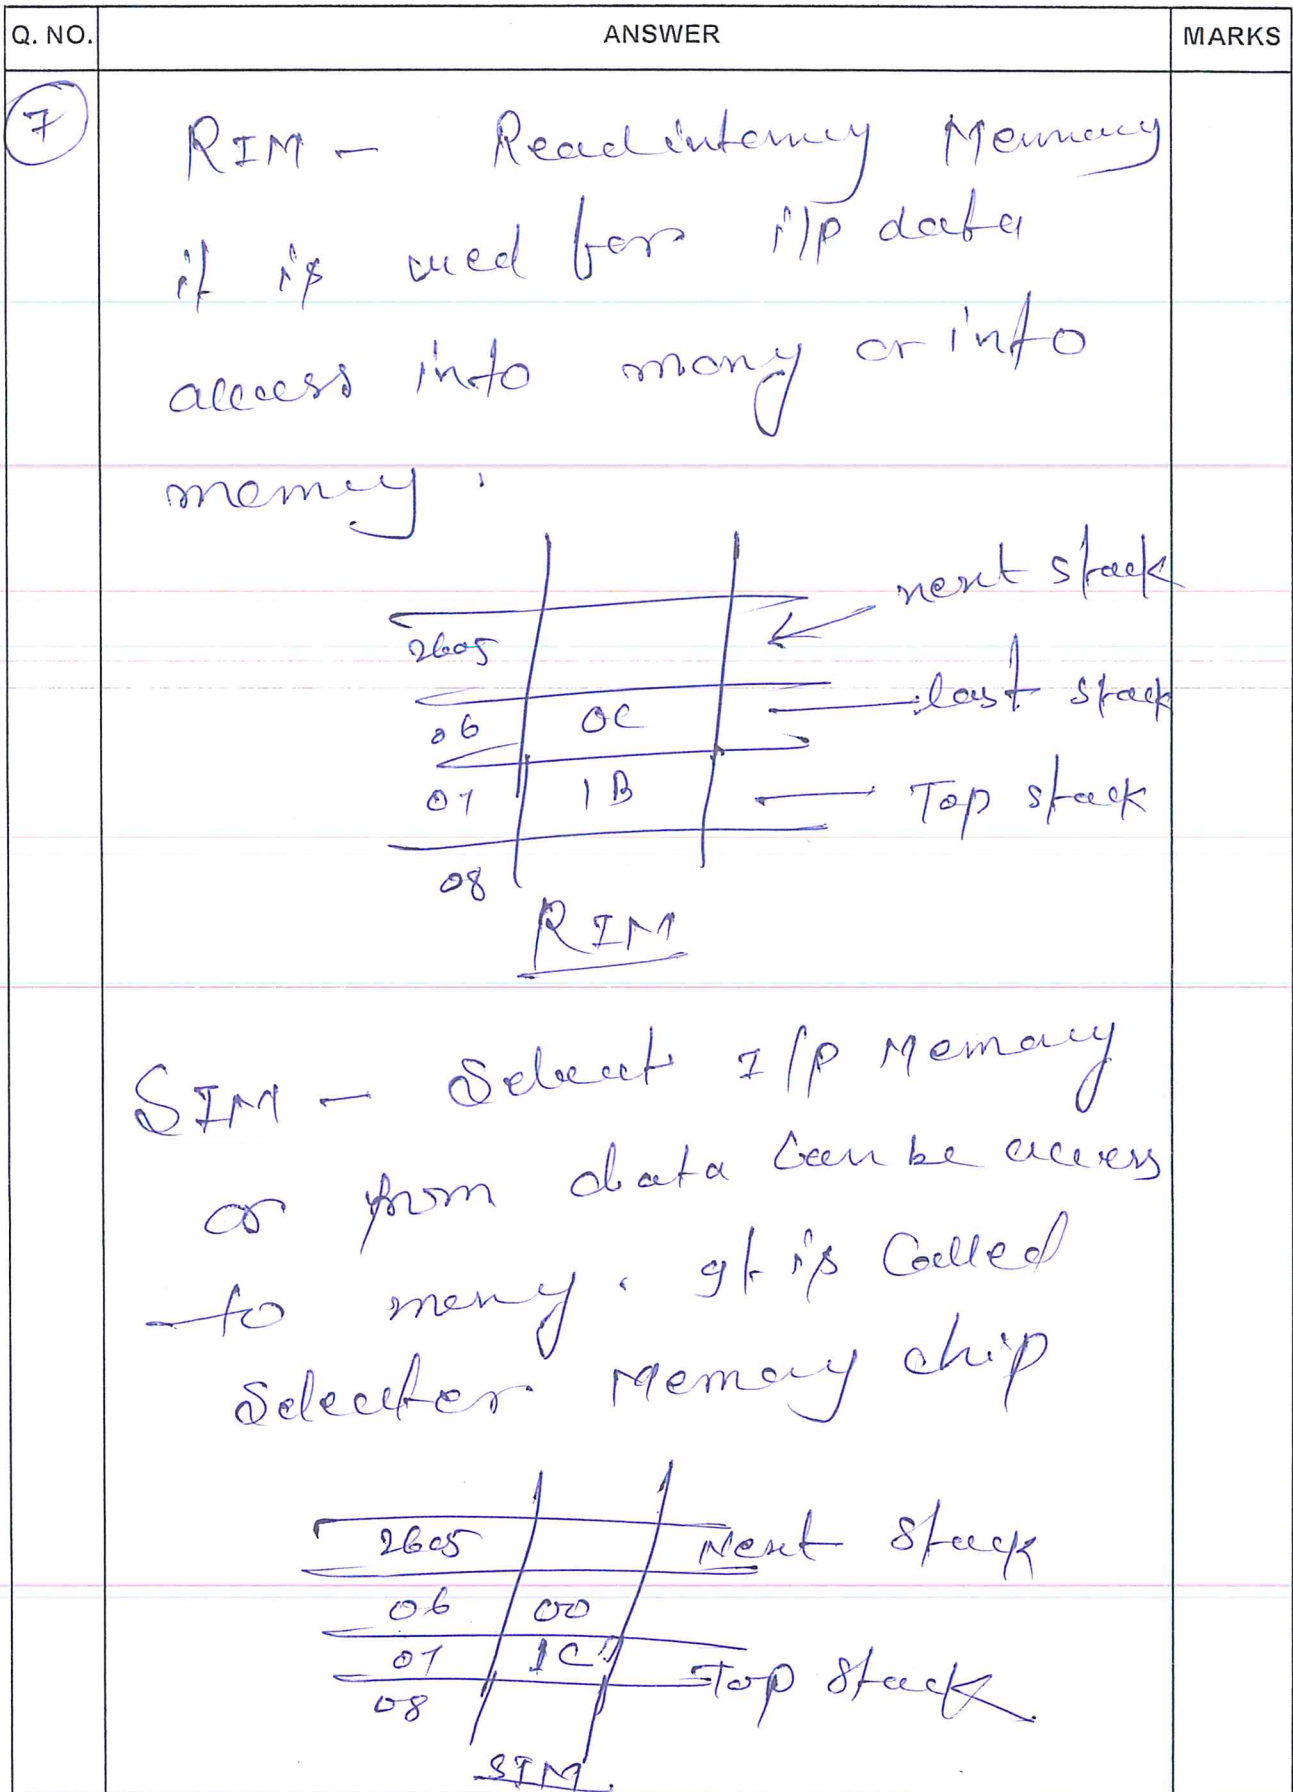 Q. NO. ANSWER MARKS
7
RIM - Read Memory
it is used for i/p data
access into mony or into
memory.
2605 next stack
06 0C last stack
07 1B Top stack
08
RIM
SIM - Select I/p Memory
or from data can be access
to meny. It is Called
Selector Memory chip
2605 Next Stack
06 00
07 1C Top Stack
08
SIM.